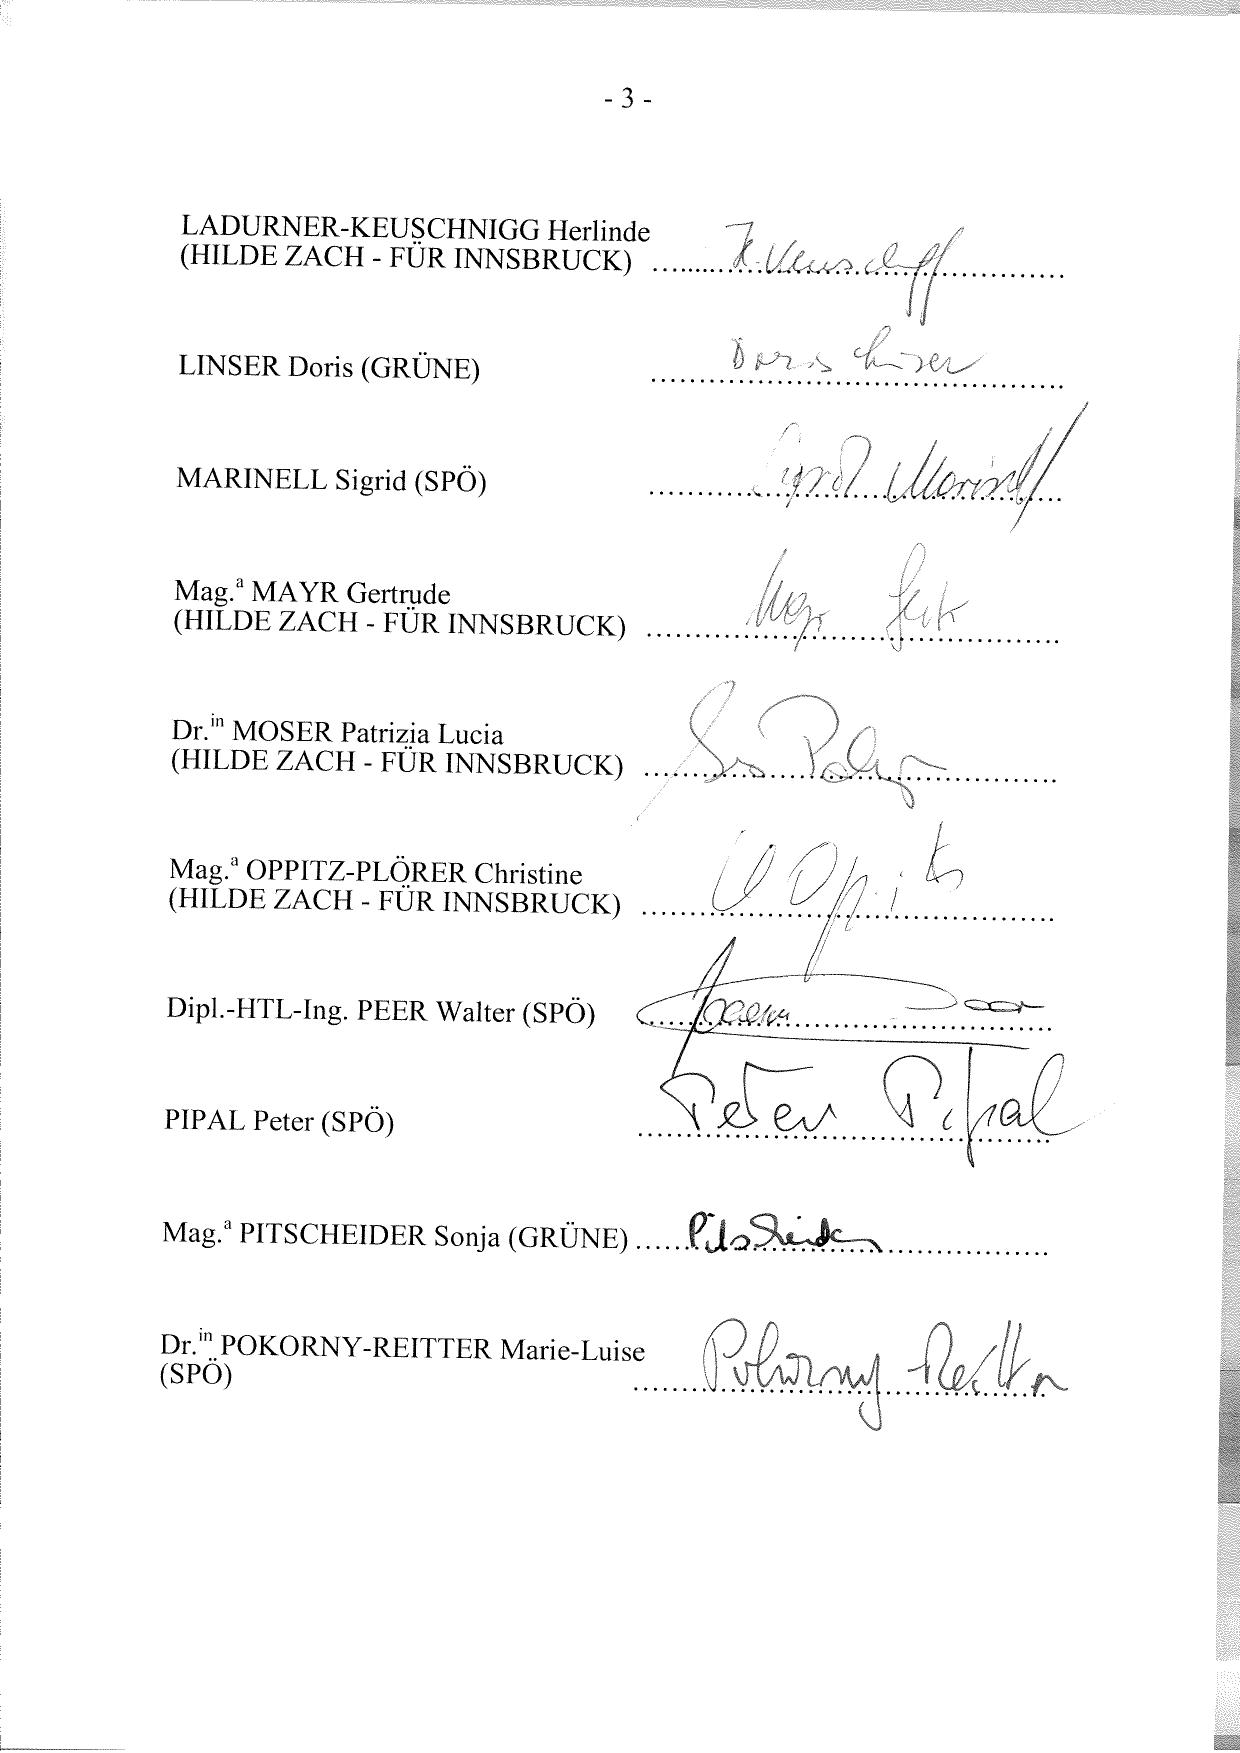 - 3 -
LADURNER-KEUSCHNIGG Herlinde
(HILDE ZACH - FÜR INNSBRUCK) ....................
LINSER Doris (GRÜNE) ....................
Doris Linser
MARINELL Sigrid (SPÖ) ....................
Sigrid Marinell
Mag.ª MAYR Gertrude
(HILDE ZACH - FÜR INNSBRUCK) ....................
Dr.ⁱⁿ MOSER Patrizia Lucia
(HILDE ZACH - FÜR INNSBRUCK) ....................
Mag.ª OPPITZ-PLÖRER Christine
(HILDE ZACH - FÜR INNSBRUCK) ....................
Dipl.-HTL-Ing. PEER Walter (SPÖ) ....................
PIPAL Peter (SPÖ) ....................
Peter Pipal
Mag.ª PITSCHEIDER Sonja (GRÜNE) ....................
Pitscheider
Dr.ⁱⁿ POKORNY-REITTER Marie-Luise
(SPÖ) ....................
Pokorny Reitter